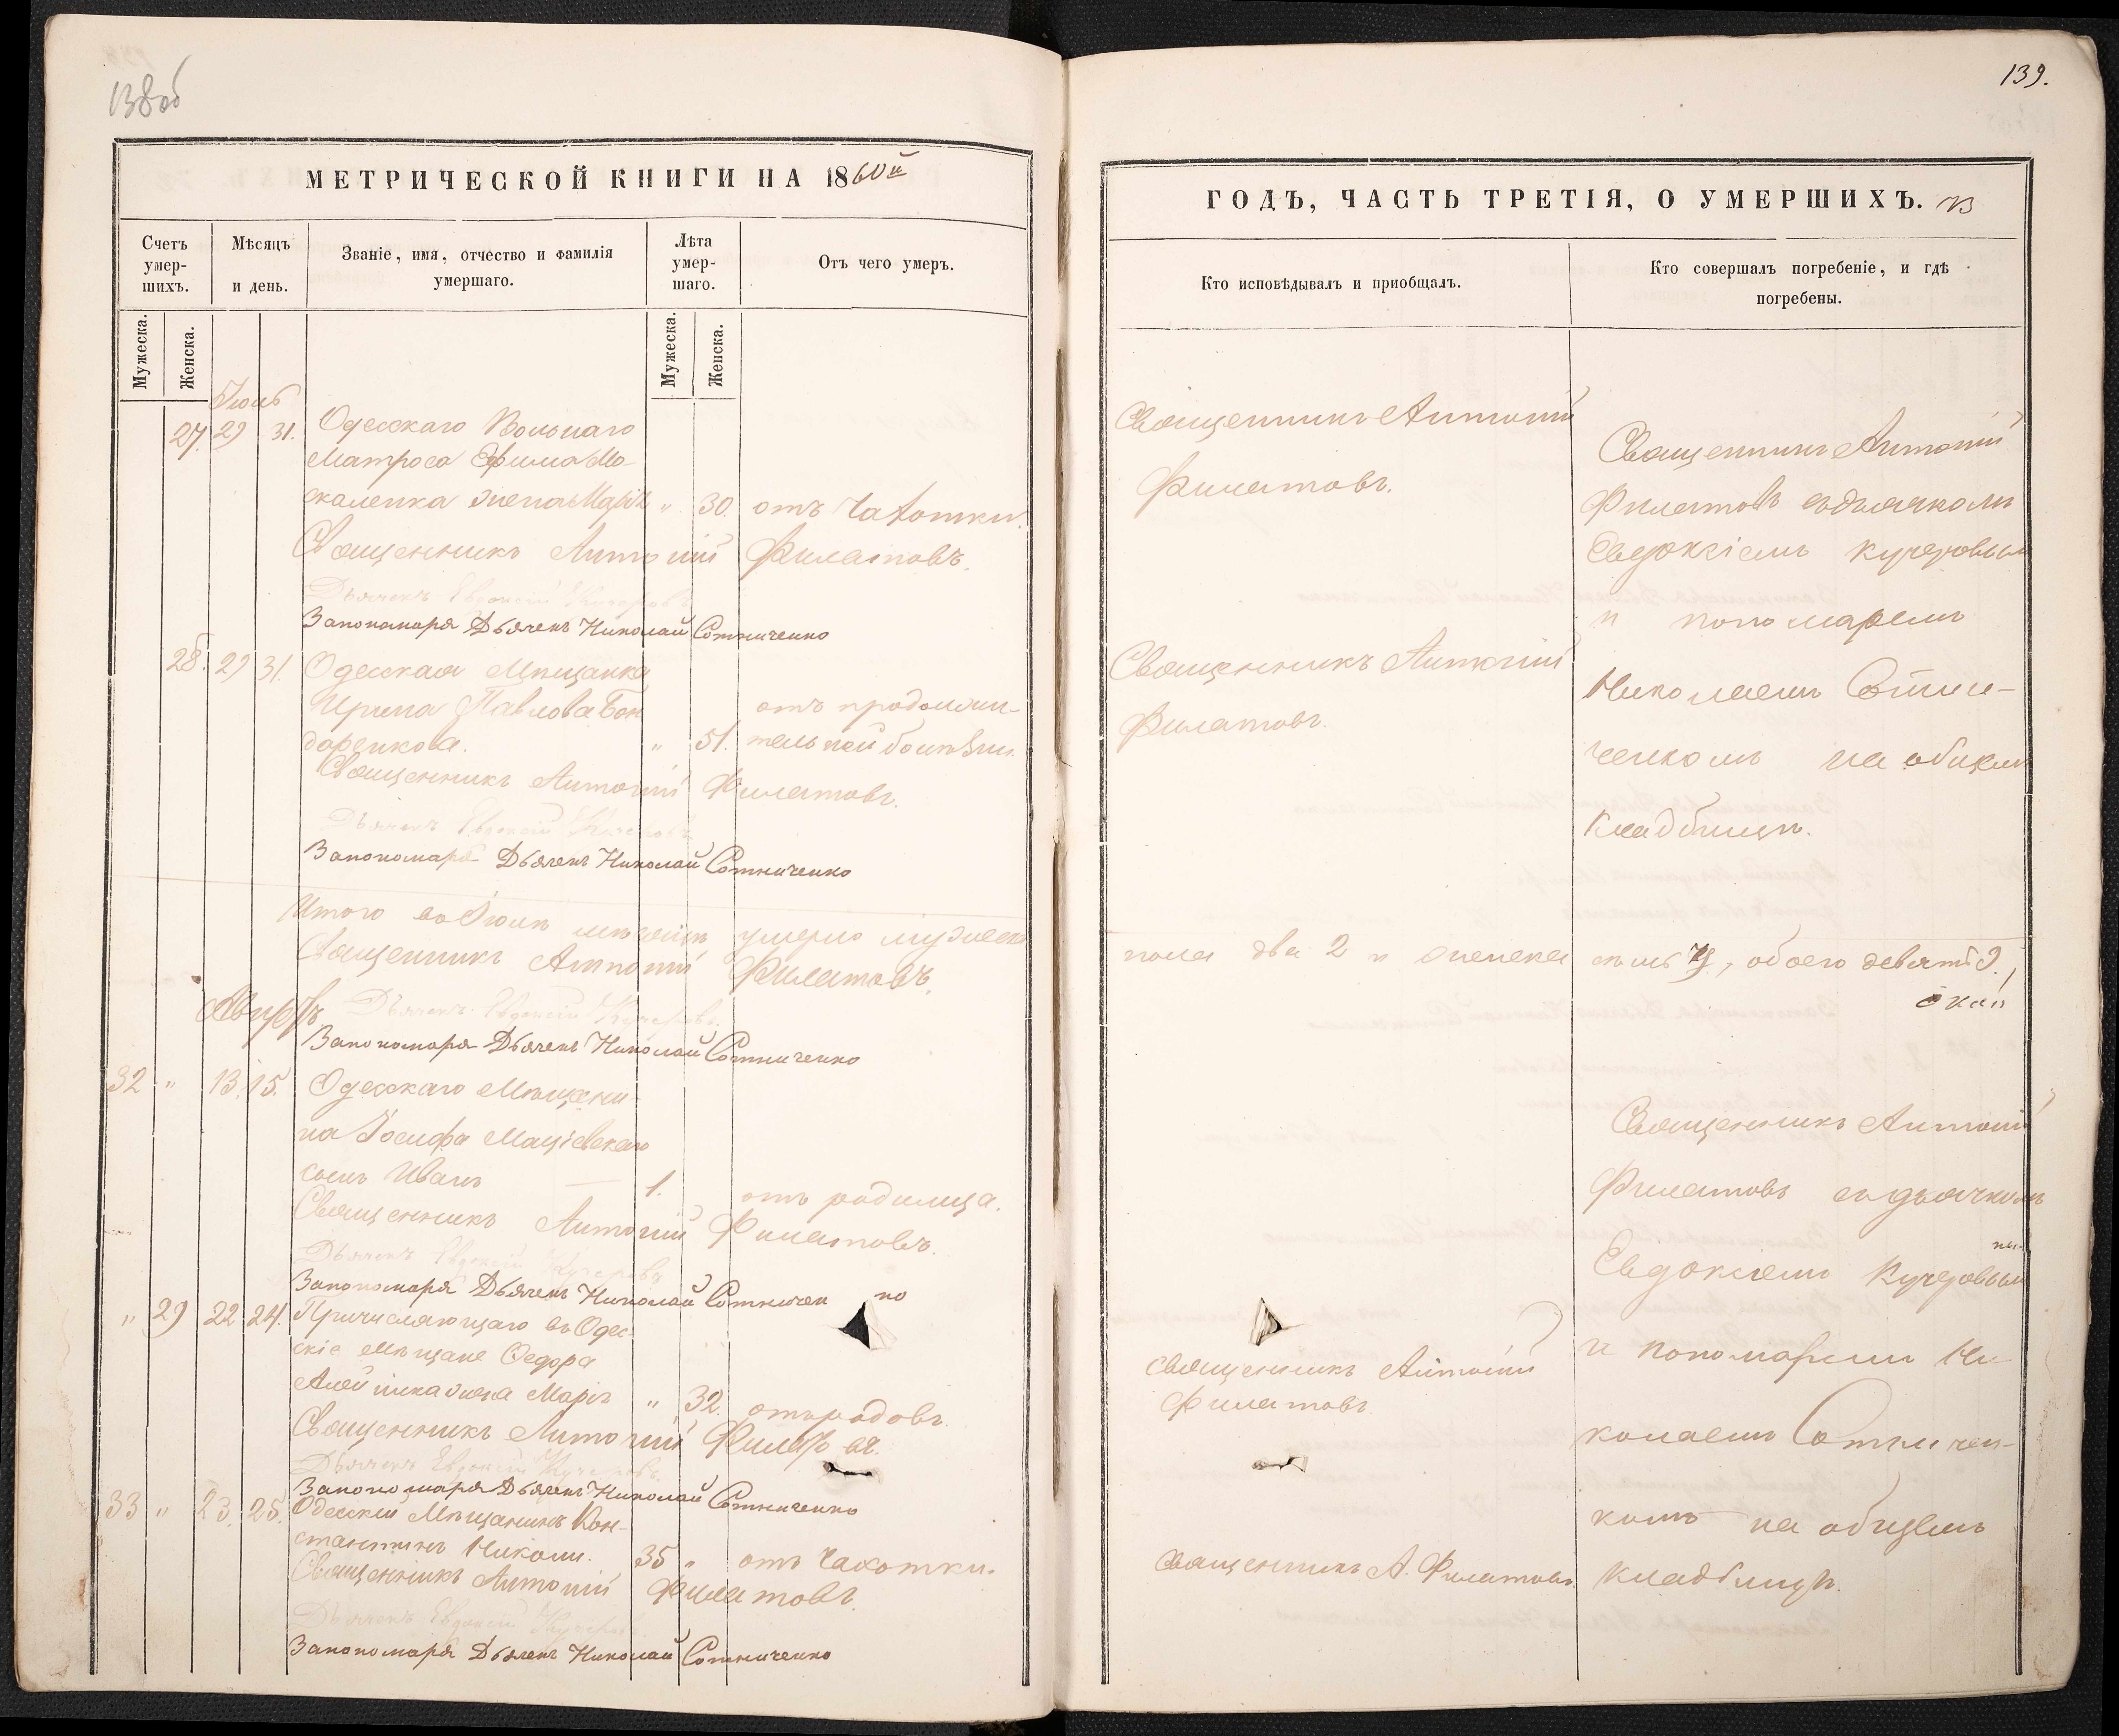 138об
МЕТРИЧЕСКОЙ КНИГИ НА 1860й
Счетъ умер-шихъ.
Мѣсяцъ и день.
Званіе, имя, отчество и фамилія умершаго.
Лѣта умер-шаго.
Отъ чего умеръ.
Мужеска.
Женска.
Мужеска.
Женска.
Іюль
27. 29 31. Одесскаго Вольнаго
Матроса Ефима Мо-
скаленка жена Марія „ 30. отъ Чахотки.
Священникъ Антоній Филатовъ.
Дьячекъ Евдокій Кучеровъ
За пономаря Дьячекъ Николай Сотниченко
28. 29 31. Одесская Мѣщанка
Ирина Павлова Бон
даренкова. „ 51. отъ продолжи-
тельной болѣзни.
Священникъ Антоній Филатовъ.
Дьячекъ Евдокій Кучеровъ
За пономаря Дьячекъ Николай Сотниченко
Итого во Іюлѣ мѣсяцѣ умерло мужеска
Священникъ Антоній Филатовъ.
Августъ
Дьячекъ Евдокій Кучеровъ.
За пономаря Дьячекъ Николай Сотниченко
32 „ 13. 15. Одесскаго Мѣщани-
на Іосифа Маціевскаго
сынъ Иванъ — 1. отъ родимца.
Священникъ Антоній Филатовъ.
Дьячекъ Евдокій Кучеровъ
За пономаря Дьячекъ Николай Сотничен ко
„ 29 22 24. Причисляющаго въ Одес-
скіе Мѣщане Федора
жена Марія „ 32. отъ родовъ.
Священникъ Антоній Филатовъ.
Дьячекъ Евдокій Кучеровъ.
За пономаря Дьячекъ Николай Сотниченко
33 „ 23. 25. Одесскій Мѣщанинъ Кон-
стантинъ Николи. 35 „ отъ Чахотки.
Священникъ Антоній Филатовъ.
Дьячекъ Евдокій Кучеровъ.
За пономаря Дьячекъ Николай Сотниченко
139.
ГОДЪ, ЧАСТЬ ТРЕТІЯ, О УМЕРШИХЪ.
Кто исповѣдывалъ и пріобщалъ.
Кто совершалъ погребеніе, и гдѣ погребены.
Священникъ Антоній
Филатовъ.
Священникъ Антоній
Филатовъ съ дьячкомъ
Евдокіемъ Кучеровым
и пономаремъ
Николаемъ Сотни-
ченкомъ на общем
кладбищѣ.
Священникъ Антоній
Филатовъ.
пола два 2 и женска семь 7, обоего девять 9.
Священникъ Антоній
Филатовъ съ дьячкомъ
Евдокіемъ Кучеровым
и пономаремъ Ни-
колаемъ Сотничен-
комъ на общемъ
кладбищѣ.
Священникъ Антоній
Филатовъ
Священникъ А. Филатовъ